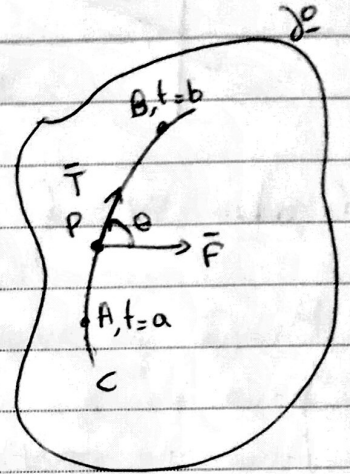 B, t=b
T̄
P
θ
F̄
A, t=a
C